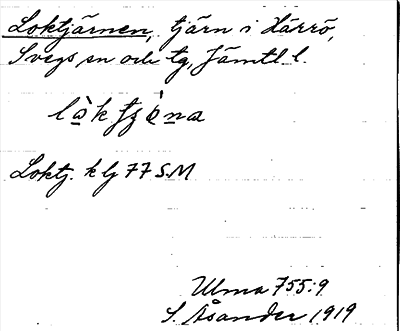 Loktjärnen, tjärn i Härrö,
Svegs sn och tg, Jämtl. l.
Loktj. k bj 77 SM
Ulma 755:9
S. Åsander 1919